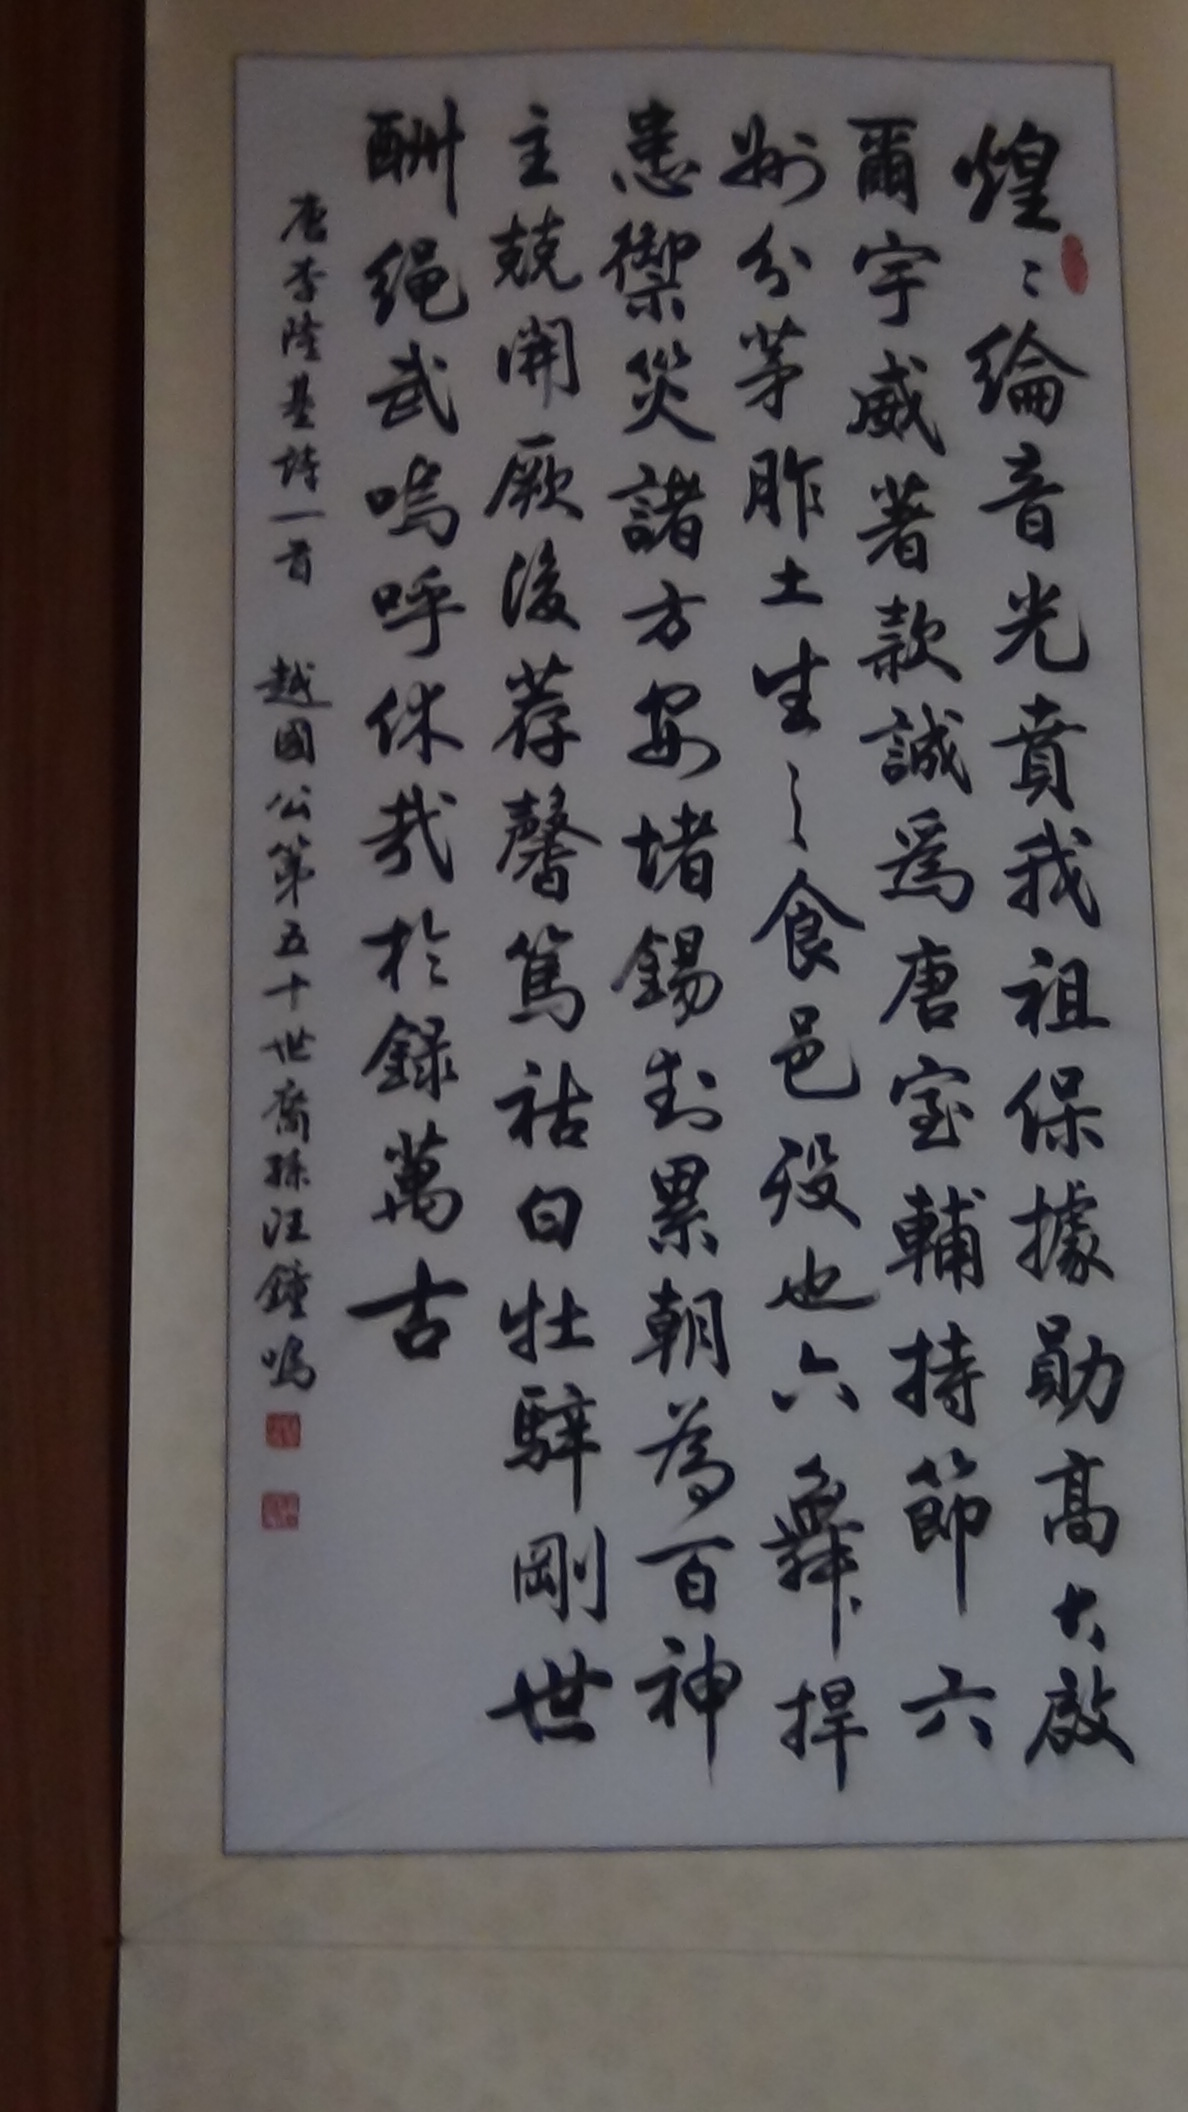 煌〻綸音光賁我祖保據勛高大啟
爾宇威著款誠為唐室輔持節六
州分茅胙土生〻食邑歿也六舞捍
患禦災諸方安堵錫封累朝為百神
主兢開厥後荐馨篤祜白牡騂剛世
酬绳武嗚呼休哉於錄萬古
唐李隆基詩一首 越國公第五十世裔孫汪鐘鳴